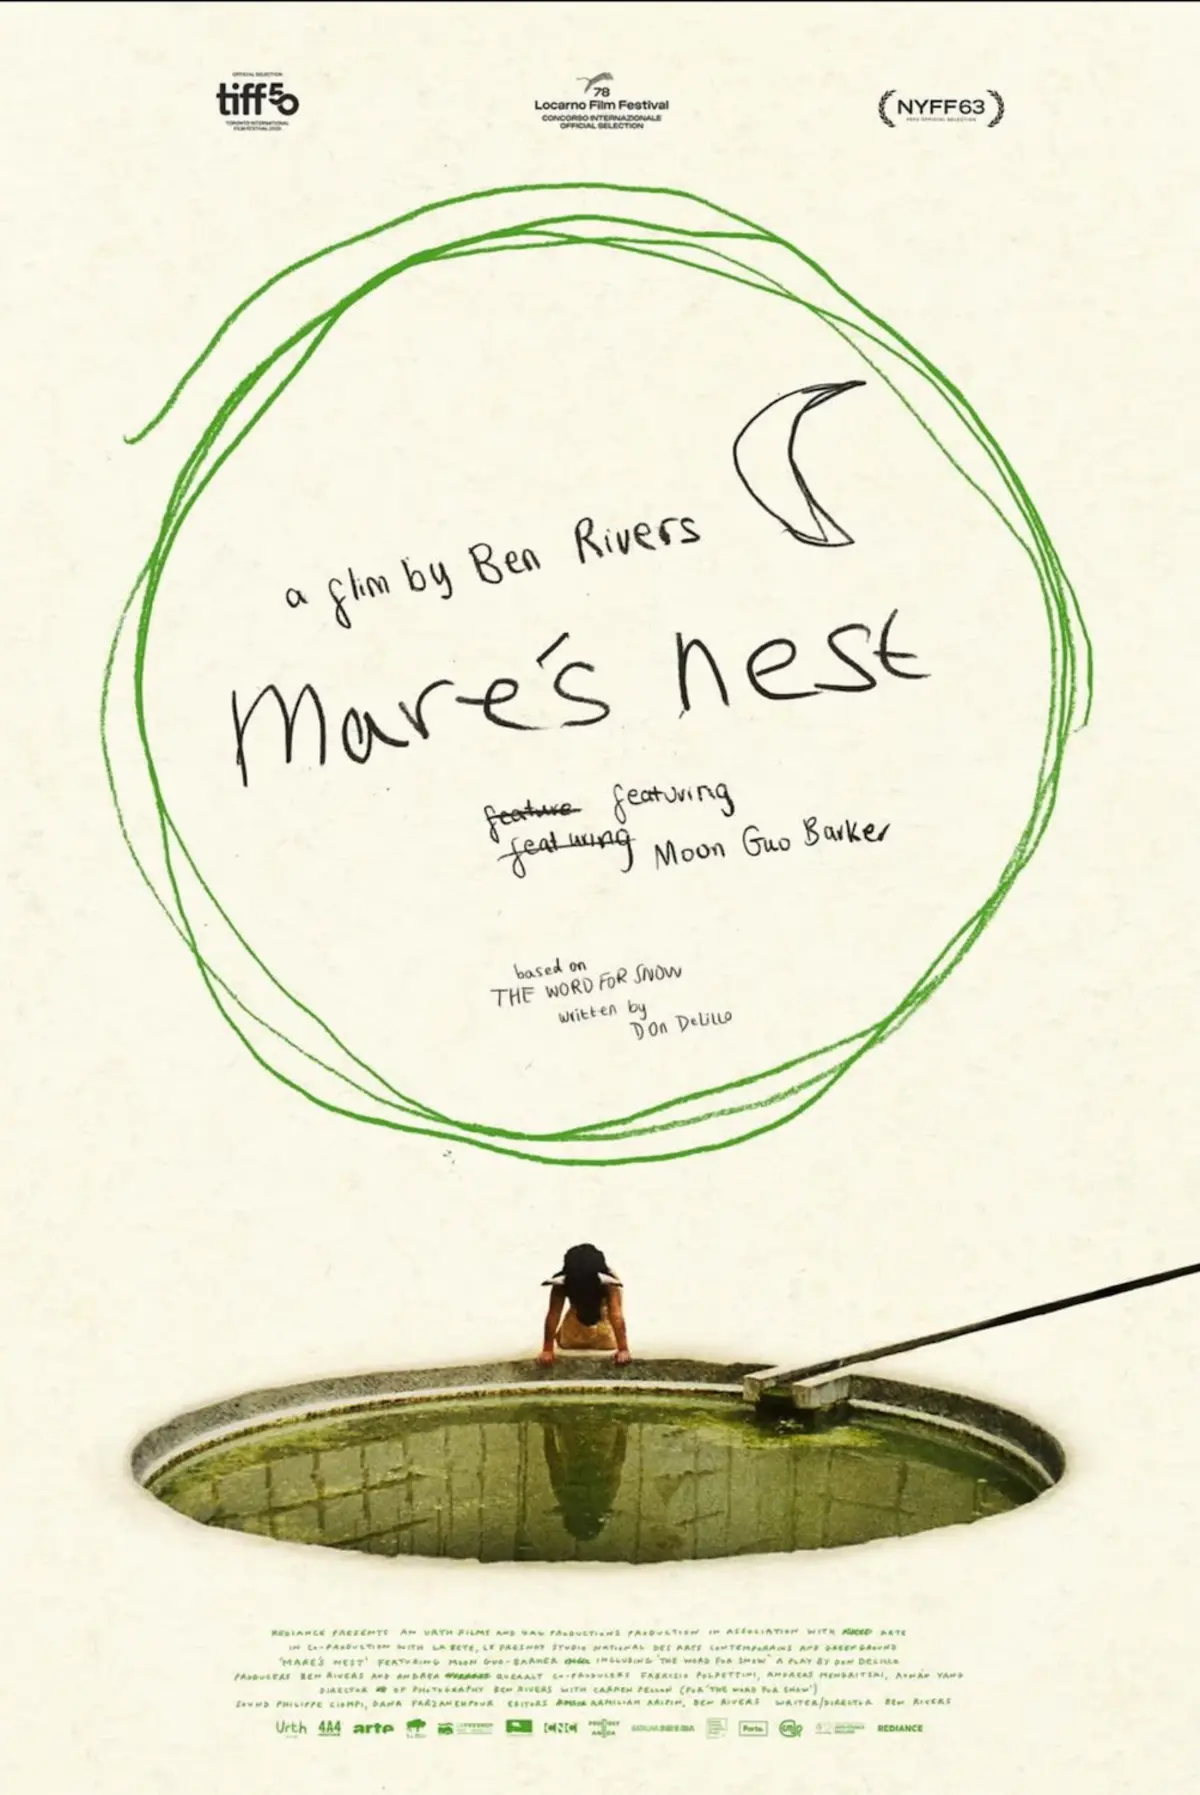 OFFICIAL SELECTION
tiff50
TORONTO INTERNATIONAL
FILM FESTIVAL 2025
78
Locarno Film Festival
CONCORSO INTERNAZIONALE
OFFICIAL SELECTION
NYFF63
2025 OFFICIAL SELECTION
a flim by Ben Rivers
Mare's nest
feature featuring
featuring Moon Guo Barker
based on
THE WORD FOR SNOW
written by
DOn DeLiLLo
REDIANCE PRESENTS AN URTH FILMS AND 4A4 PRODUCTIONS PRODUCTION IN ASSOCIATION WITH ARTE
IN CO-PRODUCTION WITH LA BETE, LE FRESNOY STUDIO NATIONAL DES ARTS CONTEMPORAINS AND GREENGROUND
'MARE'S NEST' FEATURING MOON GUO-BARKER INCLUDING 'THE WORD FOR SNOW' A PLAY BY DON DELILLO
PRODUCERS BEN RIVERS AND ANDREA QUERALT CO-PRODUCERS FABRIZIO POLPETTINI, ANDREAS MENDRITZKI, AONAN YANG
DIRECTOR OF PHOTOGRAPHY BEN RIVERS WITH CARMEN PELLON (FOR 'THE WORD FOR SNOW')
SOUND PHILIPPE CIOMPI, DANA FARZANEHPOUR EDITORS ARMILIAH ARIPIN, BEN RIVERS WRITER/DIRECTOR BEN RIVERS
Urth 4A4 arte CNC Porto. REDIANCE